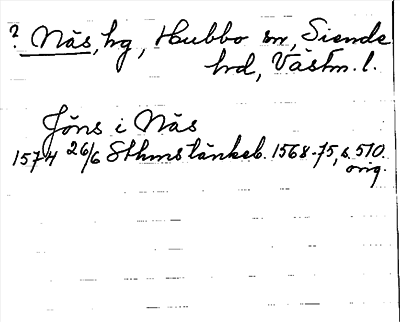 ? Näs, hg, Hubbo sn, Siende
hrd, Västm. l.
Jöns i Näs
1574 26/6 Sthms tänkeb. 1568-75, s. 510.
orig.